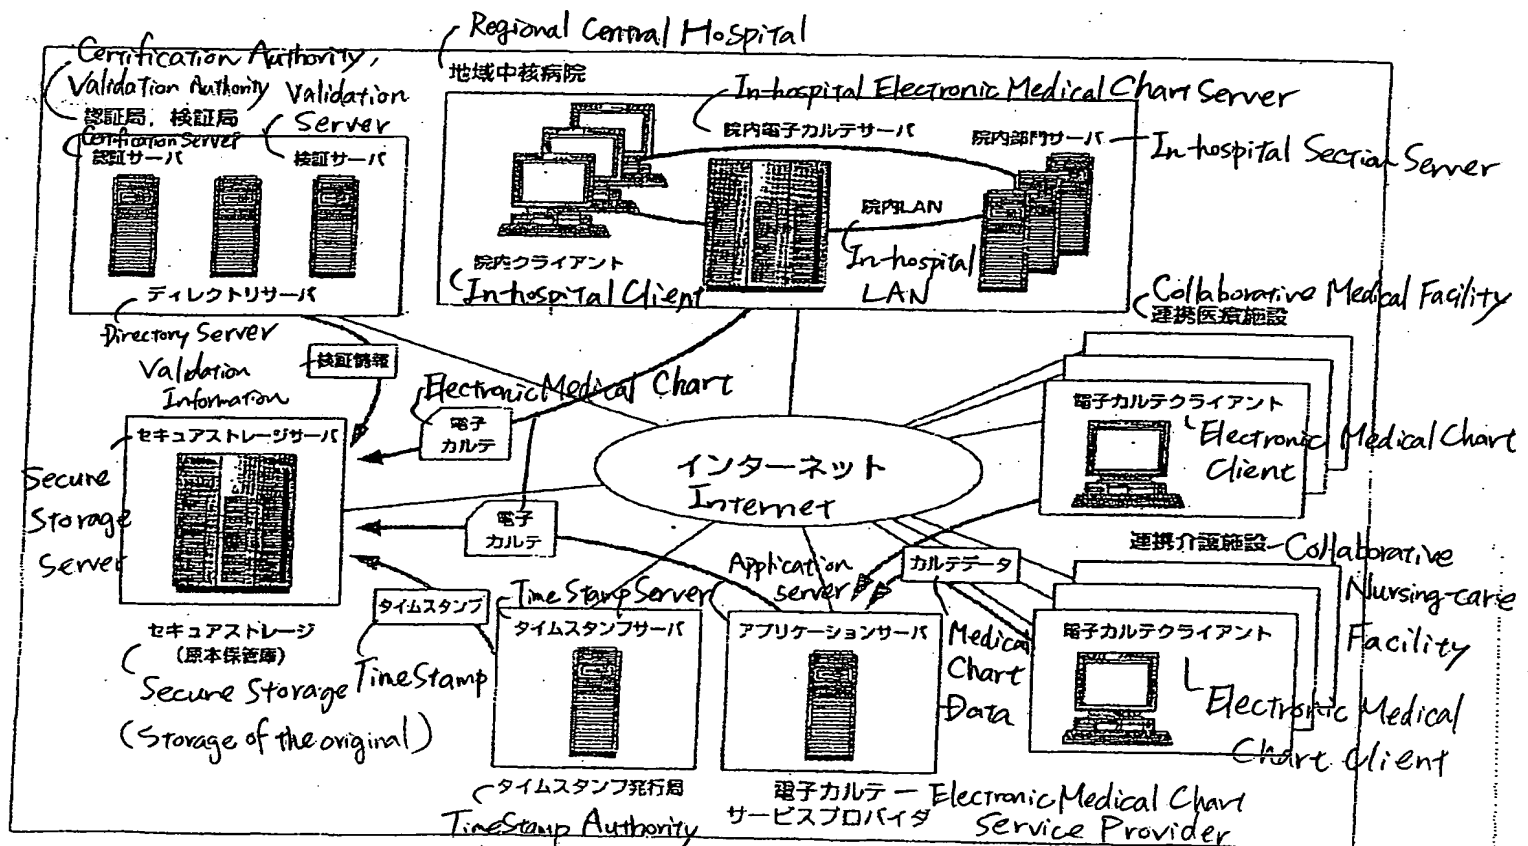 Regional Central Hospital
地域中核病院
Certification Authority,
Validation Authority
認証局, 検証局
Validation
Server
Certification Server
認証サーバ
検証サーバ
ディレクトリサーバ
Directory Server
In-hospital Electronic Medical Chart Server
院内電子カルテサーバ
院内部門サーバ
In-hospital Section Server
院内LAN
In-hospital
LAN
院内クライアント
In-hospital Client
Collaborative Medical Facility
連携医療施設
電子カルテクライアント
Electronic Medical Chart
Client
検証情報
Validation
Information
Electronic Medical Chart
電子
カルテ
セキュアストレージサーバ
Secure
Storage
Server
インターネット
Internet
電子
カルテ
連携介護施設
Collaborative
Nursing-care
Facility
Application
server
カルテデータ
Medical
Chart
Data
電子カルテクライアント
Electronic Medical
Chart Client
タイムスタンプ
TimeStamp
TimeStamp Server
タイムスタンプサーバ
アプリケーションサーバ
セキュアストレージ
(原本保管庫)
Secure Storage
(Storage of the original)
タイムスタンプ発行局
TimeStamp Authority
電子カルテ
サービスプロバイダ
Electronic Medical Chart
Service Provider